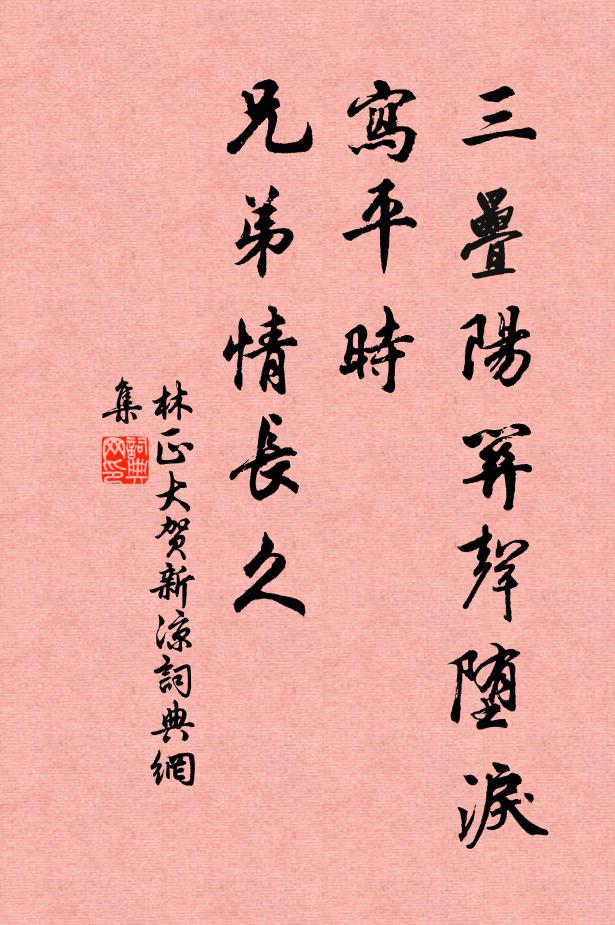 三疊陽關聲墮淚
寫平時
兄弟情長久
林正大贺新涼詞典網
集
詞典
网印